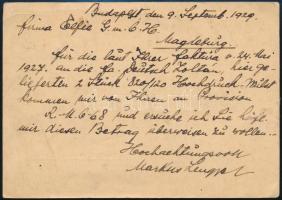 Budapest den 9. Septemb. 1929.
Firma Elfie G.m.b.H.
Magdeburg
für die laut Ihrer Faktura v. 24. Mai
1927. an die Fa Deutsch Zoltan, hier ge
lieferten 2 Stück Hochdruck.
kommen mir von Ihnen an Provision
R.M. 68 und ersuche ich Sie höfl.
mir diesen Betrag überweisen zu wollen.
Hochachtungsvoll
Markus